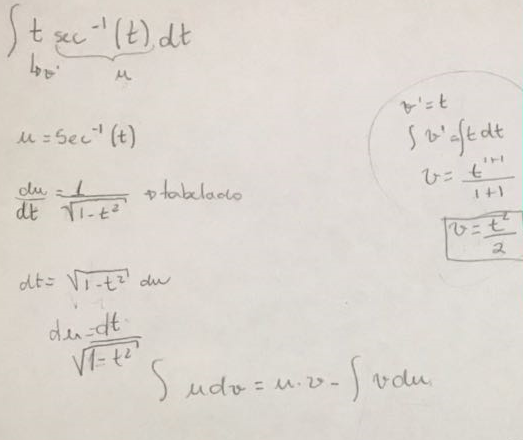 ∫ t sec⁻¹(t) dt
↳ v' u
u = Sec⁻¹(t)
du/dt = 1/√(1-t²) → tabelado
dt = √(1-t²) du
du = dt/√(1-t²)
∫ u dv = u·v - ∫ v du
v' = t
∫ v' = ∫ t dt
v = t¹⁺¹/1+1
v = t²/2